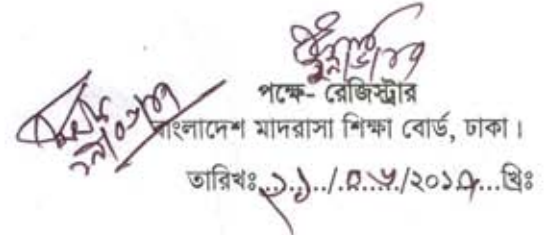 পক্ষে- রেজিস্ট্রার
বাংলাদেশ মাদরাসা শিক্ষা বোর্ড, ঢাকা।
তারিখঃ..২১../.০৬.../২০১৭...খ্রিঃ